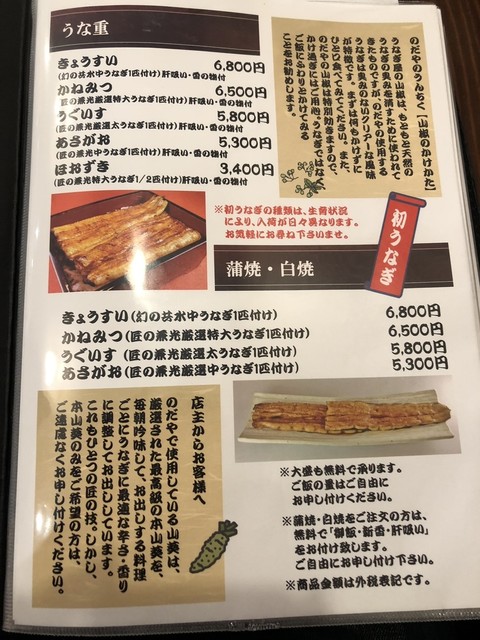 うな重
きょうすい 6,800円
(幻の共水中うなぎ1匹付け)肝吸い・香の物付
かねみつ 6,500円
匠の兼光厳選特大うなぎ1匹付け)肝吸い・香の物付
うぐいす 5,800円
(匠の兼光厳選太うなぎ1匹付け)肝吸い・香の物付
あさがお 5,300円
(匠の兼光中うなぎ1匹付け)肝吸い・香の物付
ほおずき 3,400円
(匠の兼光特大うなぎ1/2匹付け)肝吸い・香の物付
のだやのうんちく【山椒のかけかた】
うなぎ屋の山椒は、もともと天然の
うなぎの臭みを消すために使われて
きたものですが、のだやの使用する
うなぎは臭みのないクリアーな風味
が特徴です。まずは何もかけずに
ひと口食べてみてください。また、
のだやの山椒は特別効きますので、
かけ過ぎにはご用心。うなぎではなく
ご飯にふわりとかけてみる
ことをお勧めします。
※初うなぎの種類は、生育状況
により、入荷が日々異なります。
お気軽にお尋ね下さいませ。
初うなぎ
蒲焼・白焼
きょうすい(幻の共水中うなぎ1匹付け) 6,800円
かねみつ(匠の兼光厳選特大うなぎ1匹付け) 6,500円
うぐいす(匠の兼光厳選太うなぎ1匹付け) 5,800円
あさがお(匠の兼光中うなぎ1匹付け) 5,300円
店主からお客様へ
のだやで使用している山葵は、
厳選された最高級の本山葵を、
毎朝吟味して、お出しする料理
ごとにうなぎに最適な辛さ・香り
に調整してお出ししています。
これもひとつの匠の技。しかし、
本山葵のみをご希望の方は、
ご遠慮なくお申し付けください。
※大盛も無料で承ります。
ご飯の量はご自由に
お申し付けください。
※蒲焼・白焼をご注文の方は、
無料で「御飯・新香・肝吸い」
をお付け致します。
ご自由にお申し付け下さい。
※商品金額は外税表記です。